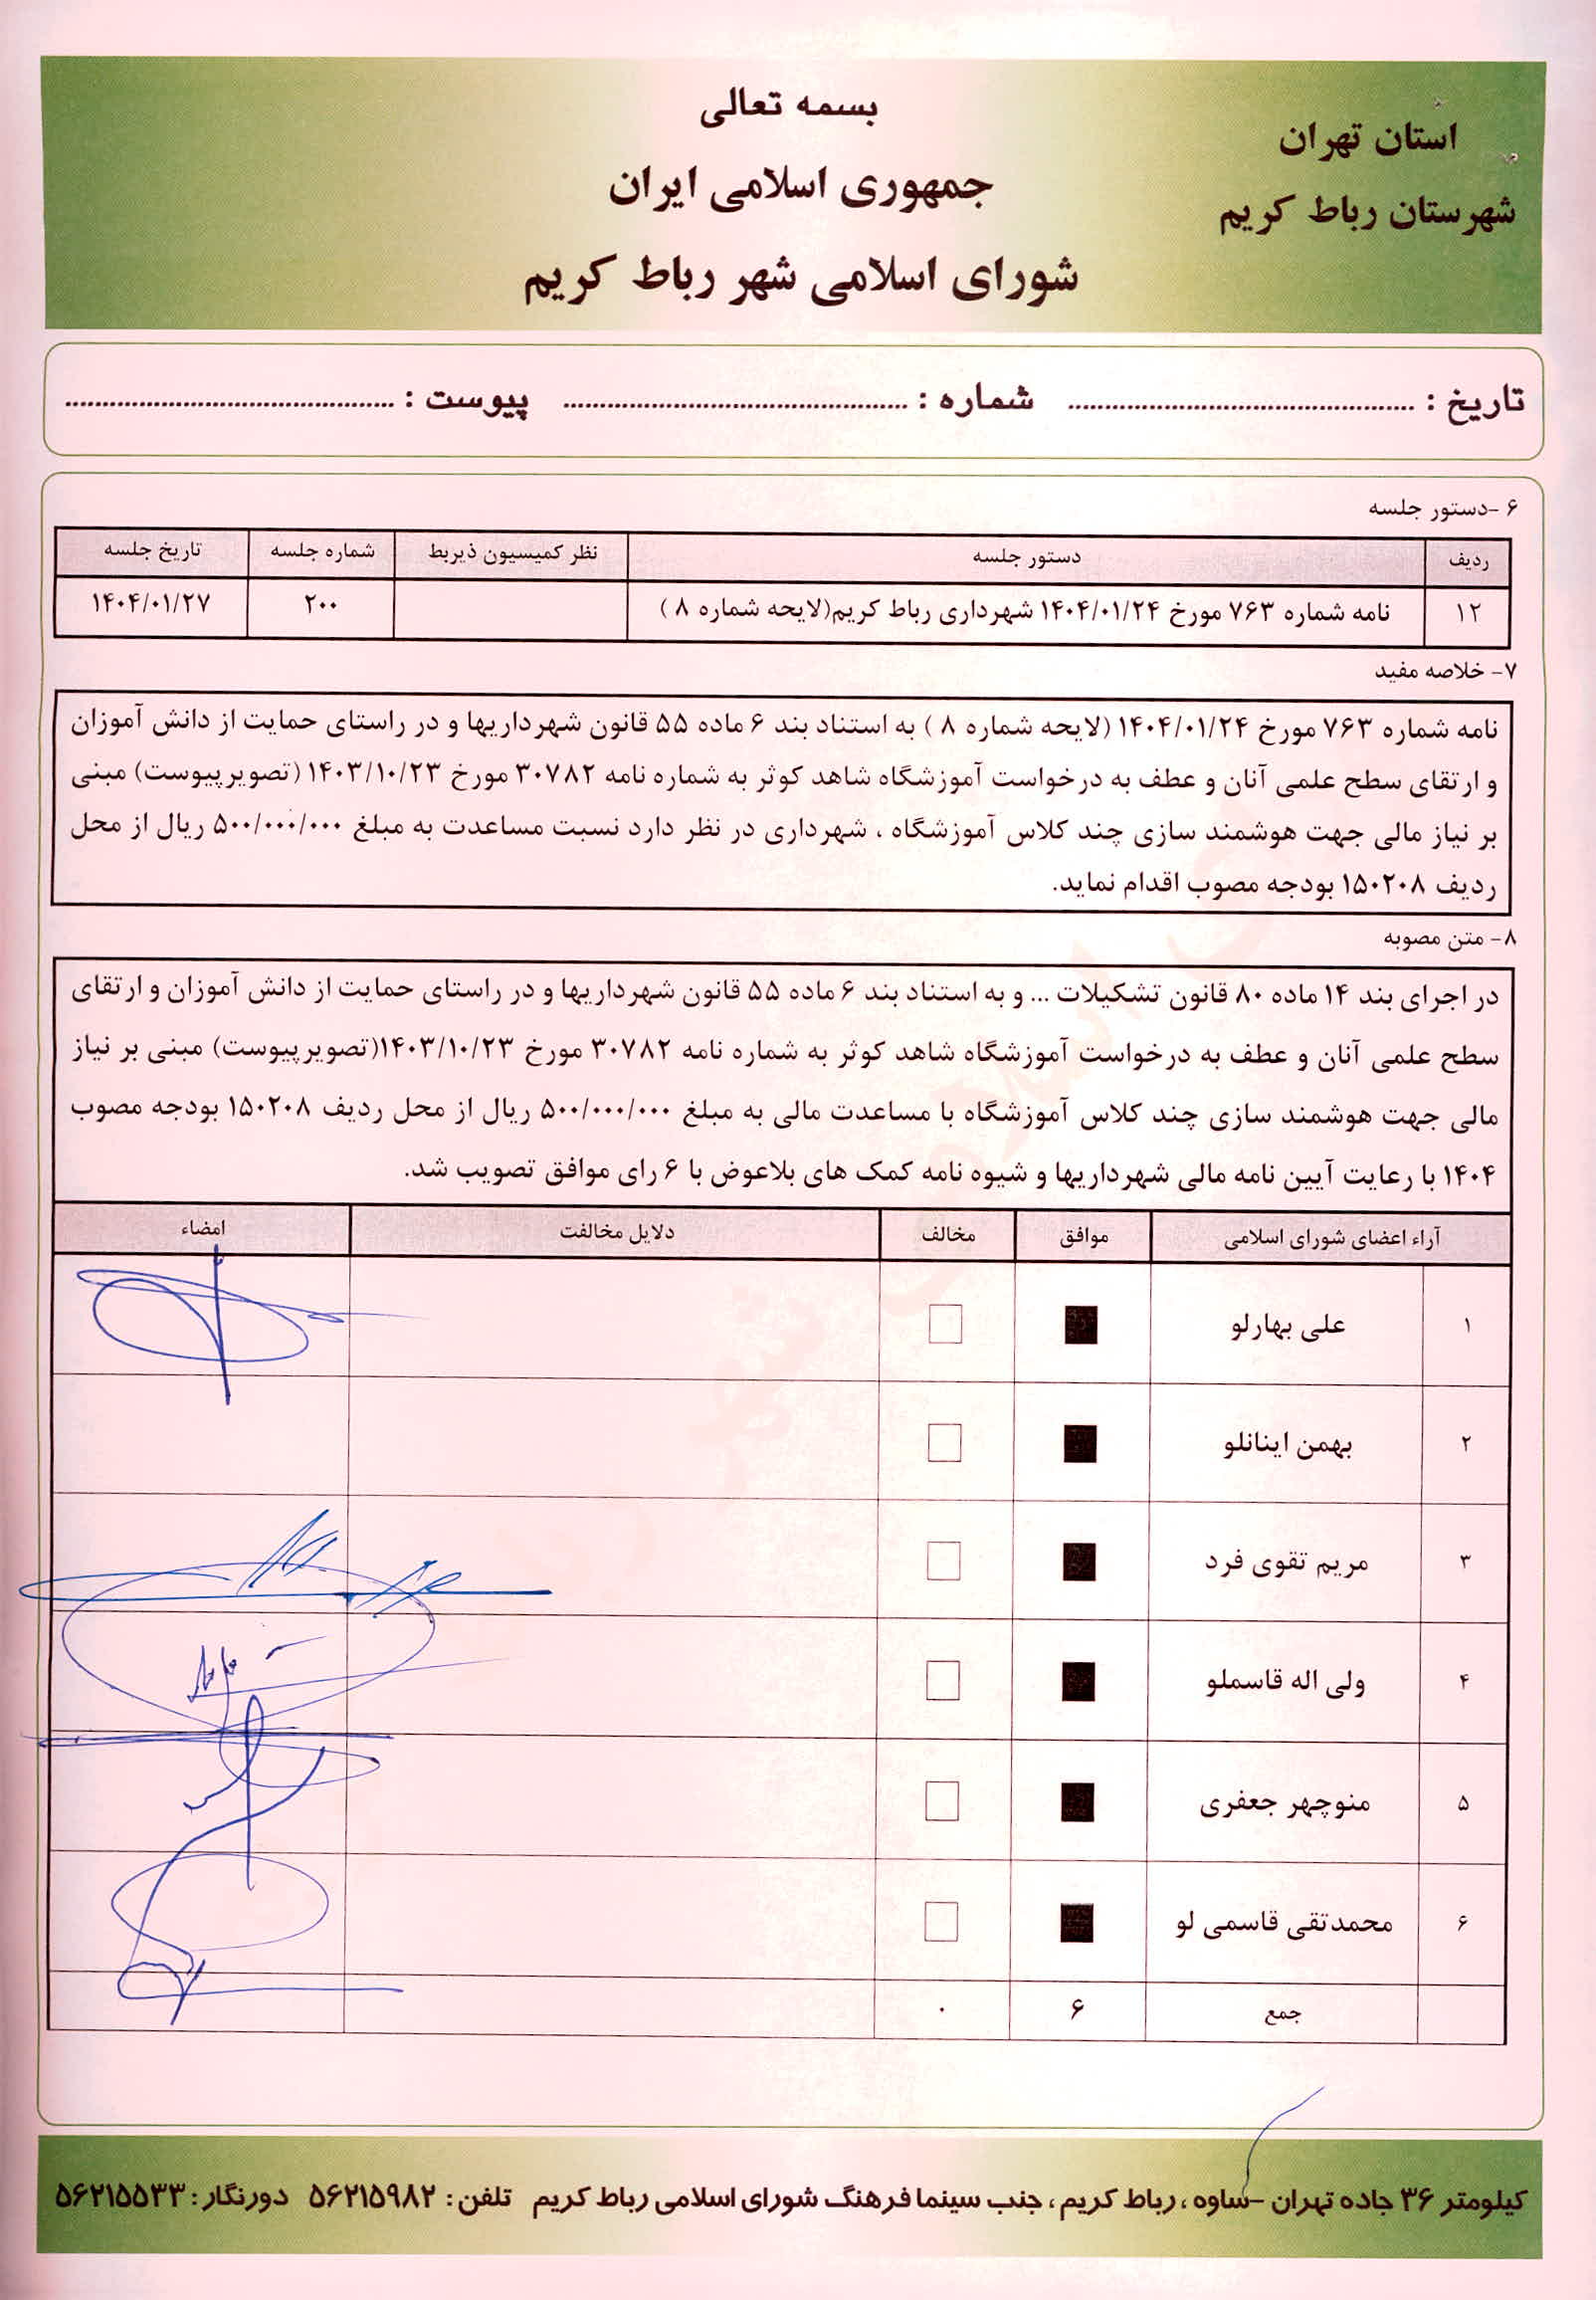 بسمه تعالی
استان تهران
جمهوری اسلامی ایران
شهرستان رباط کریم
شورای اسلامی شهر رباط کریم
تاریخ : ............ شماره : ............ پیوست : ............
۶ -دستور جلسه
ردیف دستور جلسه نظر کمیسیون ذیربط شماره جلسه تاریخ جلسه
۱۲ نامه شماره ۷۶۳ مورخ ۱۴۰۴/۰۱/۲۴ شهرداری رباط کریم(لایحه شماره ۸ ) ۲۰۰ ۱۴۰۴/۰۱/۲۷
۷- خلاصه مفید
نامه شماره ۷۶۳ مورخ ۱۴۰۴/۰۱/۲۴ (لایحه شماره ۸ ) به استناد بند ۶ ماده ۵۵ قانون شهرداریها و در راستای حمایت از دانش آموزان
و ارتقای سطح علمی آنان و عطف به درخواست آموزشگاه شاهد کوثر به شماره نامه ۳۰۷۸۲ مورخ ۱۴۰۳/۱۰/۲۳ (تصویرپیوست) مبنی
بر نیاز مالی جهت هوشمند سازی چند کلاس آموزشگاه ، شهرداری در نظر دارد نسبت مساعدت به مبلغ ۵۰۰/۰۰۰/۰۰۰ ریال از محل
ردیف ۱۵۰۲۰۸ بودجه مصوب اقدام نماید.
۸- متن مصوبه
در اجرای بند ۱۴ ماده ۸۰ قانون تشکیلات ... و به استناد بند ۶ ماده ۵۵ قانون شهرداریها و در راستای حمایت از دانش آموزان و ارتقای
سطح علمی آنان و عطف به درخواست آموزشگاه شاهد کوثر به شماره نامه ۳۰۷۸۲ مورخ ۱۴۰۳/۱۰/۲۳(تصویرپیوست) مبنی بر نیاز
مالی جهت هوشمند سازی چند کلاس آموزشگاه با مساعدت مالی به مبلغ ۵۰۰/۰۰۰/۰۰۰ ریال از محل ردیف ۱۵۰۲۰۸ بودجه مصوب
۱۴۰۴ با رعایت آیین نامه مالی شهرداریها و شیوه نامه کمک های بلاعوض با ۶ رای موافق تصویب شد.
آراء اعضای شورای اسلامی موافق مخالف دلایل مخالفت امضاء
۱ علی بهارلو
۲ بهمن اینانلو
۳ مریم تقوی فرد
۴ ولی اله قاسملو
۵ منوچهر جعفری
۶ محمدتقی قاسمی لو
جمع ۶ ۰
کیلومتر ۳۶ جاده تهران -ساوه ، رباط کریم ، جنب سینما فرهنگ شورای اسلامی رباط کریم تلفن : ۵۶۲۱۵۹۸۲ دورنگار : ۵۶۲۱۵۵۳۳